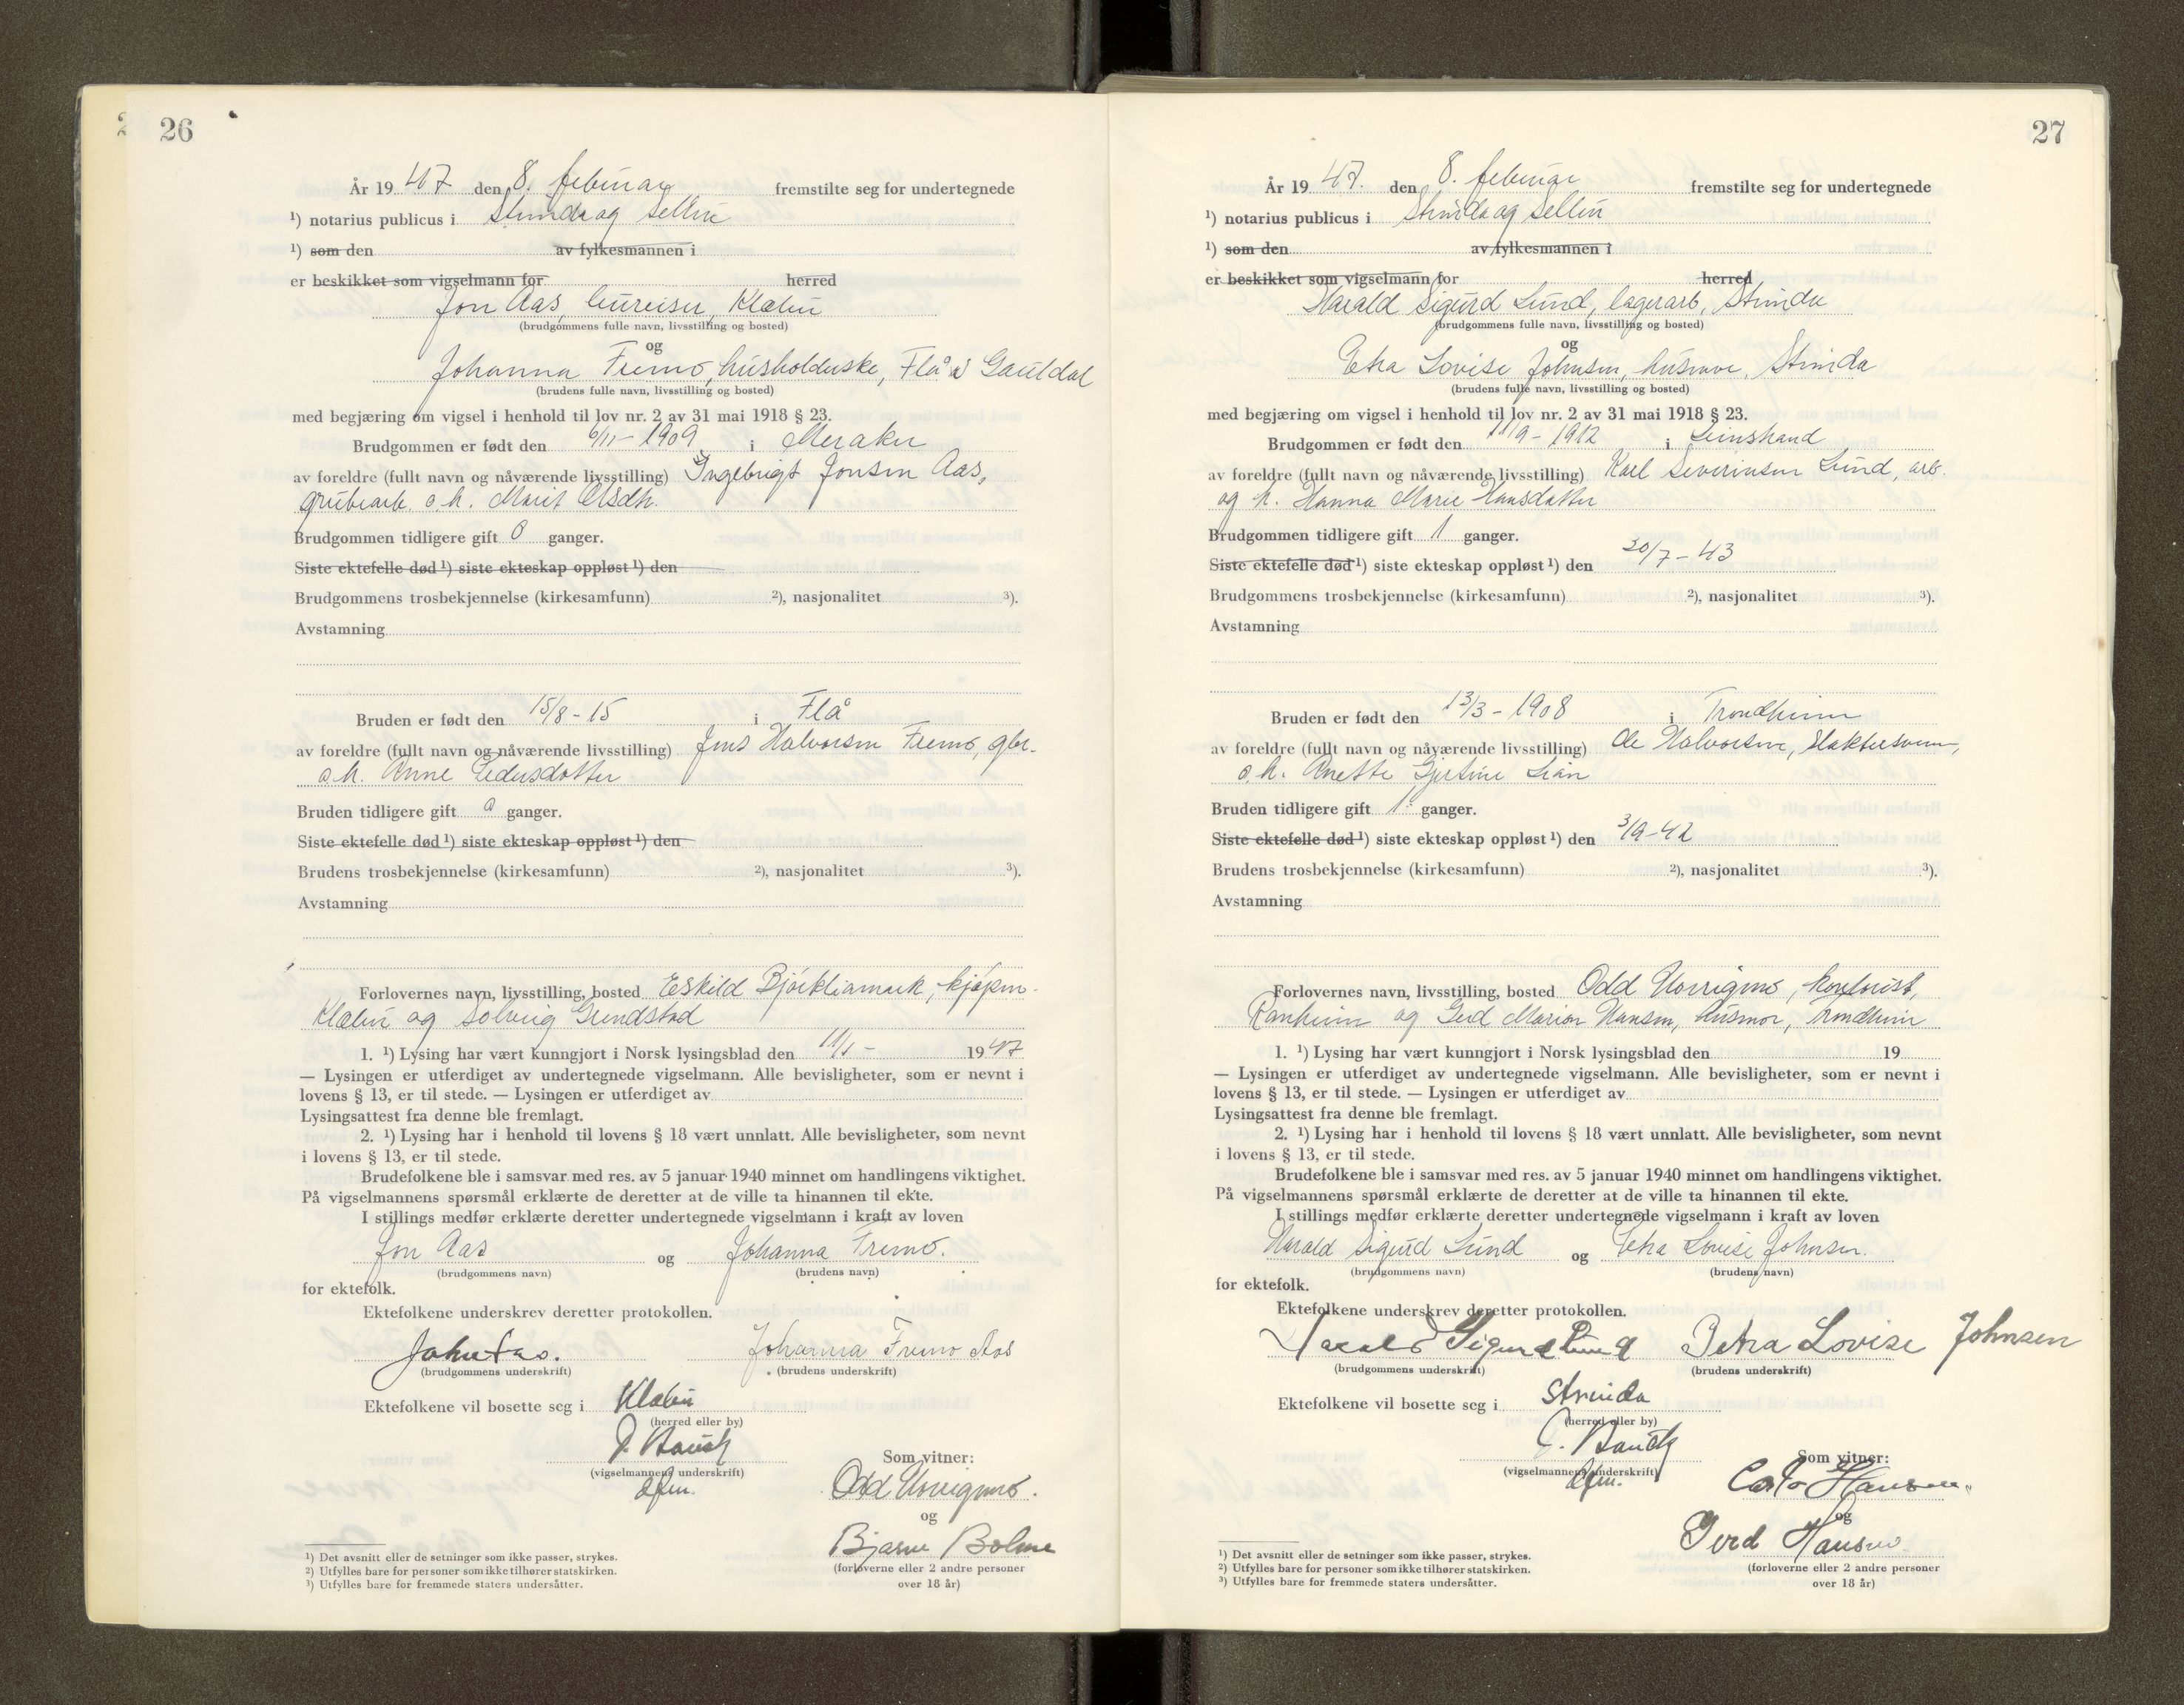 26
År 19 47 den 8. februar fremstilte seg for undertegnede
¹) notarius publicus i Strinda og Selbu
¹) som den av fylkesmannen i
er beskikket som vigselmann for herred
Jon Aas, bureiser, Klæbu
(brudgommens fulle navn, livsstilling og bosted)
og
Johanna Fremo, husholderske, Flå i Gauldal
(brudens fulle navn, livsstilling og bosted)
med begjæring om vigsel i henhold til lov nr. 2 av 31 mai 1918 § 23.
Brudgommen er født den 6/11 - 1909 i Meraker
av foreldre (fullt navn og nåværende livsstilling) Ingebrigt Jonsen Aas,
grubearb. o.h. Marit Olsdtr.
Brudgommen tidligere gift 0 ganger.
Siste ektefelle død ¹) siste ekteskap oppløst ¹) den
Brudgommens trosbekjennelse (kirkesamfunn) ²), nasjonalitet ³).
Avstamning
Bruden er født den 15/8 - 15 i Flå
av foreldre (fullt navn og nåværende livsstilling) Jens Halvorsen Fremo, gbr.
o.h. Anne Pedersdotter
Bruden tidligere gift 0 ganger.
Siste ektefelle død ¹) siste ekteskap oppløst ¹) den
Brudens trosbekjennelse (kirkesamfunn) ²), nasjonalitet ³).
Avstamning
Forlovernes navn, livsstilling, bosted Eskild Bjørkliamark, kjøpm.
Klæbu og Solveig Grendstad
1. ¹) Lysing har vært kunngjort i Norsk lysingsblad den 11/1 - 19 47
— Lysingen er utferdiget av undertegnede vigselmann. Alle bevisligheter, som er nevnt i
lovens § 13, er til stede. — Lysingen er utferdiget av
Lysingsattest fra denne ble fremlagt.
2. ¹) Lysing har i henhold til lovens § 18 vært unnlatt. Alle bevisligheter, som nevnt
i lovens § 13, er til stede.
Brudefolkene ble i samsvar med res. av 5 januar 1940 minnet om handlingens viktighet.
På vigselmannens spørsmål erklærte de deretter at de ville ta hinannen til ekte.
I stillings medfør erklærte deretter undertegnede vigselmann i kraft av loven
Jon Aas og Johanna Fremo.
(brudgommens navn) (brudens navn)
for ektefolk.
Ektefolkene underskrev deretter protokollen.
John Aas. Johanna Fremo Aas
(brudgommens underskrift) (brudens underskrift)
Ektefolkene vil bosette seg i Klæbu
(herred eller by)
(vigselmannens underskrift)
Som vitner:
Odd Norrigmo.
og
Bjarne Bolme
(forloverne eller 2 andre personer
over 18 år)
¹) Det avsnitt eller de setninger som ikke passer, strykes.
²) Utfylles bare for personer som ikke tilhører statskirken.
³) Utfylles bare for fremmede staters undersåtter.
27
År 19 47. den 8. februar fremstilte seg for undertegnede
¹) notarius publicus i Strinda og Selbu
¹) som den av fylkesmannen i
er beskikket som vigselmann for herred
Harald Sigurd Lund, lagerarb, Strinda
(brudgommens fulle navn, livsstilling og bosted)
og
Petra Lovise Johnsen, husmor, Strinda
(brudens fulle navn, livsstilling og bosted)
med begjæring om vigsel i henhold til lov nr. 2 av 31 mai 1918 § 23.
Brudgommen er født den 11/9 - 1912 i Leinstrand
av foreldre (fullt navn og nåværende livsstilling) Karl Severinsen Lund, arb.
og h. Hanna Marie Hansdatter
Brudgommen tidligere gift 1 ganger.
Siste ektefelle død ¹) siste ekteskap oppløst ¹) den 20/7 - 43
Brudgommens trosbekjennelse (kirkesamfunn) ²), nasjonalitet ³).
Avstamning
Bruden er født den 13/3 - 1908 i Trondheim
av foreldre (fullt navn og nåværende livsstilling) Ole Halvorsen, slaktersvenn,
o.h. Anette Gjertine Lian
Bruden tidligere gift 1 ganger.
Siste ektefelle død ¹) siste ekteskap oppløst ¹) den 3/9 - 42
Brudens trosbekjennelse (kirkesamfunn) ²), nasjonalitet ³).
Avstamning
Forlovernes navn, livsstilling, bosted Odd Norrigmo, kontorist,
Ranheim og Gerd Marion Hansen, husmor, Trondheim
1. ¹) Lysing har vært kunngjort i Norsk lysingsblad den 19
— Lysingen er utferdiget av undertegnede vigselmann. Alle bevisligheter, som er nevnt i
lovens § 13, er til stede. — Lysingen er utferdiget av
Lysingsattest fra denne ble fremlagt.
2. ¹) Lysing har i henhold til lovens § 18 vært unnlatt. Alle bevisligheter, som nevnt
i lovens § 13, er til stede.
Brudefolkene ble i samsvar med res. av 5 januar 1940 minnet om handlingens viktighet.
På vigselmannens spørsmål erklærte de deretter at de ville ta hinannen til ekte.
I stillings medfør erklærte deretter undertegnede vigselmann i kraft av loven
Harald Sigurd Lund og Petra Lovise Johnsen.
(brudgommens navn) (brudens navn)
for ektefolk.
Ektefolkene underskrev deretter protokollen.
Harald Sigurd Lund Petra Lovise Johnsen
(brudgommens underskrift) (brudens underskrift)
Ektefolkene vil bosette seg i Strinda
(herred eller by)
(vigselmannens underskrift)
Som vitner:
Carlo Hansen
og
Gerd Hansen
(forloverne eller 2 andre personer
over 18 år)
¹) Det avsnitt eller de setninger som ikke passer, strykes.
²) Utfylles bare for personer som ikke tilhører statskirken.
³) Utfylles bare for fremmede staters undersåtter.